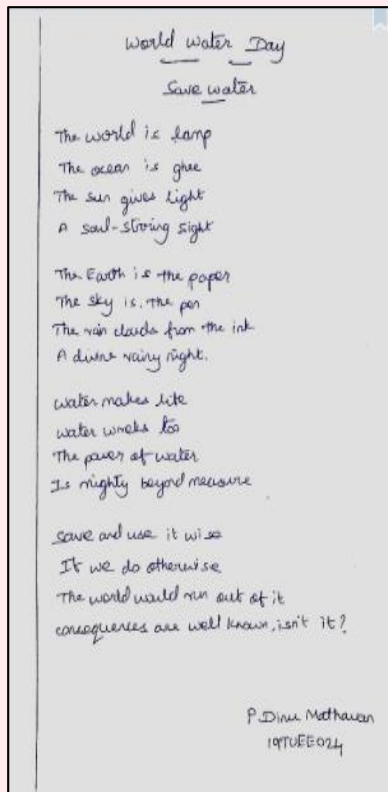 World Water Day
Save water
The world is lamp
The ocean is ghee
The sun gives light
A soul-stiring sight
The Earth is the paper
The sky is the pen
The rain clouds from the ink
A divine rainy night.
water makes life
water wreks too
The power of water
Is mighty beyond measure
Save and use it wise
If we do otherwise
The world would run out of it
consequences are well known, isn't it?
P. Dinu Mathavan
19TUEE024